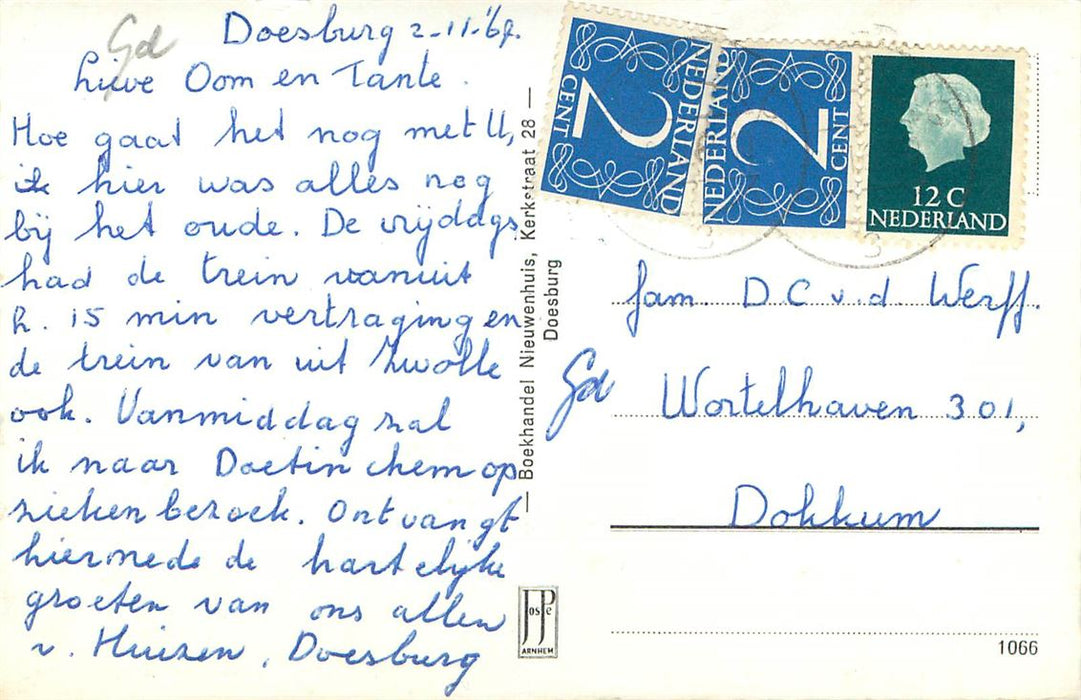 Gd
Doesburg 2-11-'67.
Lieve Oom en Tante.
Hoe gaat het nog met U,
hier was alles nog
bij het oude. De vrijdags
had de trein vanuit
L. 15 min vertraging en
de trein van uit Zwolle
ook. Vanmiddag zal
ik naar Doetinchem op
zieken bezoek. Ontvangt
hiermede de hartelijke
groeten van ons allen
v. Huizen, Doesburg
— Boekhandel Nieuwenhuis, Kerkstraat 28 —
Doesburg
JosPe
ARNHEM
2 CENT NEDERLAND
2 CENT NEDERLAND
12 C
NEDERLAND
fam. D C v.d. Werff.
Gd
Wortelhaven 301,
Dokkum
1066